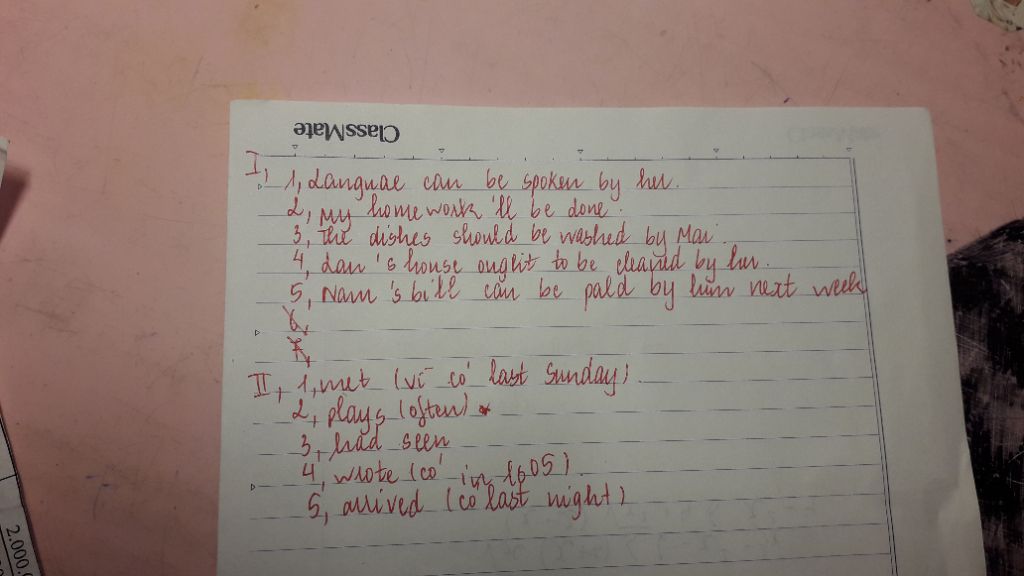 ClassMate
I, 1, Languae can be spoken by her.
2, My homework 'll be done.
3, The dishes should be washed by Mai.
4, Lan 's house ought to be cleaned by her.
5, Nam 's bill can be paid by him next week
6,
7,
II, 1, met (vì có last Sunday).
2, plays (often)
3, had seen
4, wrote (có in
5, arrived (có last night)
2.000.